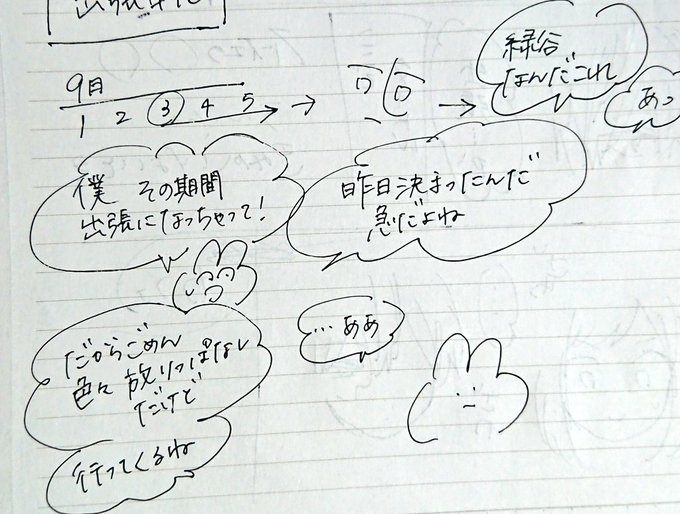 9月
1 2 3 4 5
緑谷
なんだこれ
あっ
僕 その期間
出張になっちゃって!
昨日決まったんだ
急だよね
だからごめん
色々放りっぱなし
だけど
行ってくるね
…ああ